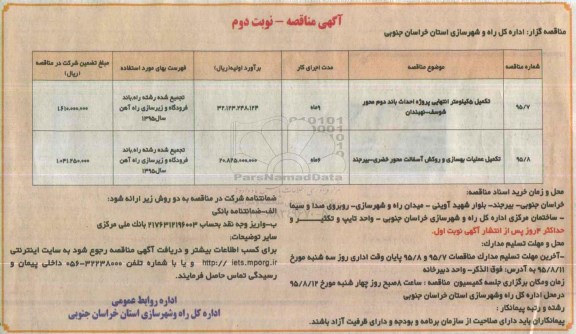 آگهی مناقصه - نوبت دوم
مناقصه گزار: اداره کل راه و شهرسازی استان خراسان جنوبی
شماره مناقصه
موضوع مناقصه
مدت اجرای کار
برآورد اولیه(ریال)
فهرست بهای مورد استفاده
مبلغ تضمین شرکت در مناقصه (ریال)
۹۵/۷
تکمیل ۵کیلومتر انتهایی پروژه احداث باند دوم محور شوسف-نهبندان
۹ماه
۳۲.۱۶۳.۲۴۸.۱۲۴
تجمیع شده رشته راه،باند فرودگاه و زیرسازی راه آهن سال۱۳۹۵
۱.۶۱۰.۰۰۰.۰۰۰
۹۵/۸
تکمیل عملیات بهسازی و روکش آسفالت محور خضری-بیرجند
۶ماه
۲۰.۸۶۵.۰۰۰.۰۰۰
تجمیع شده رشته راه،باند فرودگاه و زیرسازی راه آهن سال۱۳۹۵
۱.۰۴۱.۲۵۰.۰۰۰
ParsNamadData
محل و زمان خرید اسناد مناقصه:
خراسان جنوبی- بیرجند- بلوار شهید آوینی - میدان راه و شهرسازی- روبروی صدا و سیما
- ساختمان مرکزی اداره کل راه و شهرسازی خراسان جنوبی - واحد تایپ و تکثیر و
حداکثر ۴روز پس از انتشار آگهی نوبت اول.
محل و مهلت تسلیم مدارک:
-آخرین مهلت تسلیم مدارک مناقصات ۹۵/۷ و ۹۵/۸ پایان وقت اداری روز سه شنبه مورخ
۹۵/۸/۱۱ به آدرس: فوق الذکر- واحد دبیرخانه
زمان ومکان برگزاری جلسه کمیسیون مناقصه : ساعت ۸صبح روز چهار شنبه مورخ ۹۵/۸/۱۲
درمحل اداره کل راه وشهرسازی استان خراسان جنوبی
رشته و رتبه پیمانکار :
پیمانکاران باید دارای صلاحیت از سازمان برنامه و بودجه و دارای ظرفیت آزاد باشند.
ضمانتنامه شرکت در مناقصه به دو روش زیر ارائه شود:
الف-ضمانتنامه بانکی
ب-واریز وجه نقد بحساب ۲۱۷۶۳۱۲۱۹۶۰۰۳ بانک ملی مرکزی
سایر توضیحات:
برای کسب اطلاعات بیشتر و دریافت آگهی مناقصه رجوع شود به سایت اینترنتی
http:// iets.mporg.ir و یا با شماره تلفن ۳۲۲۳۸۰۰۰-۰۵۶ داخلی پیمان و
رسیدگی تماس حاصل فرمایند.
اداره روابط عمومی
اداره کل راه وشهرسازی استان خراسان جنوبی